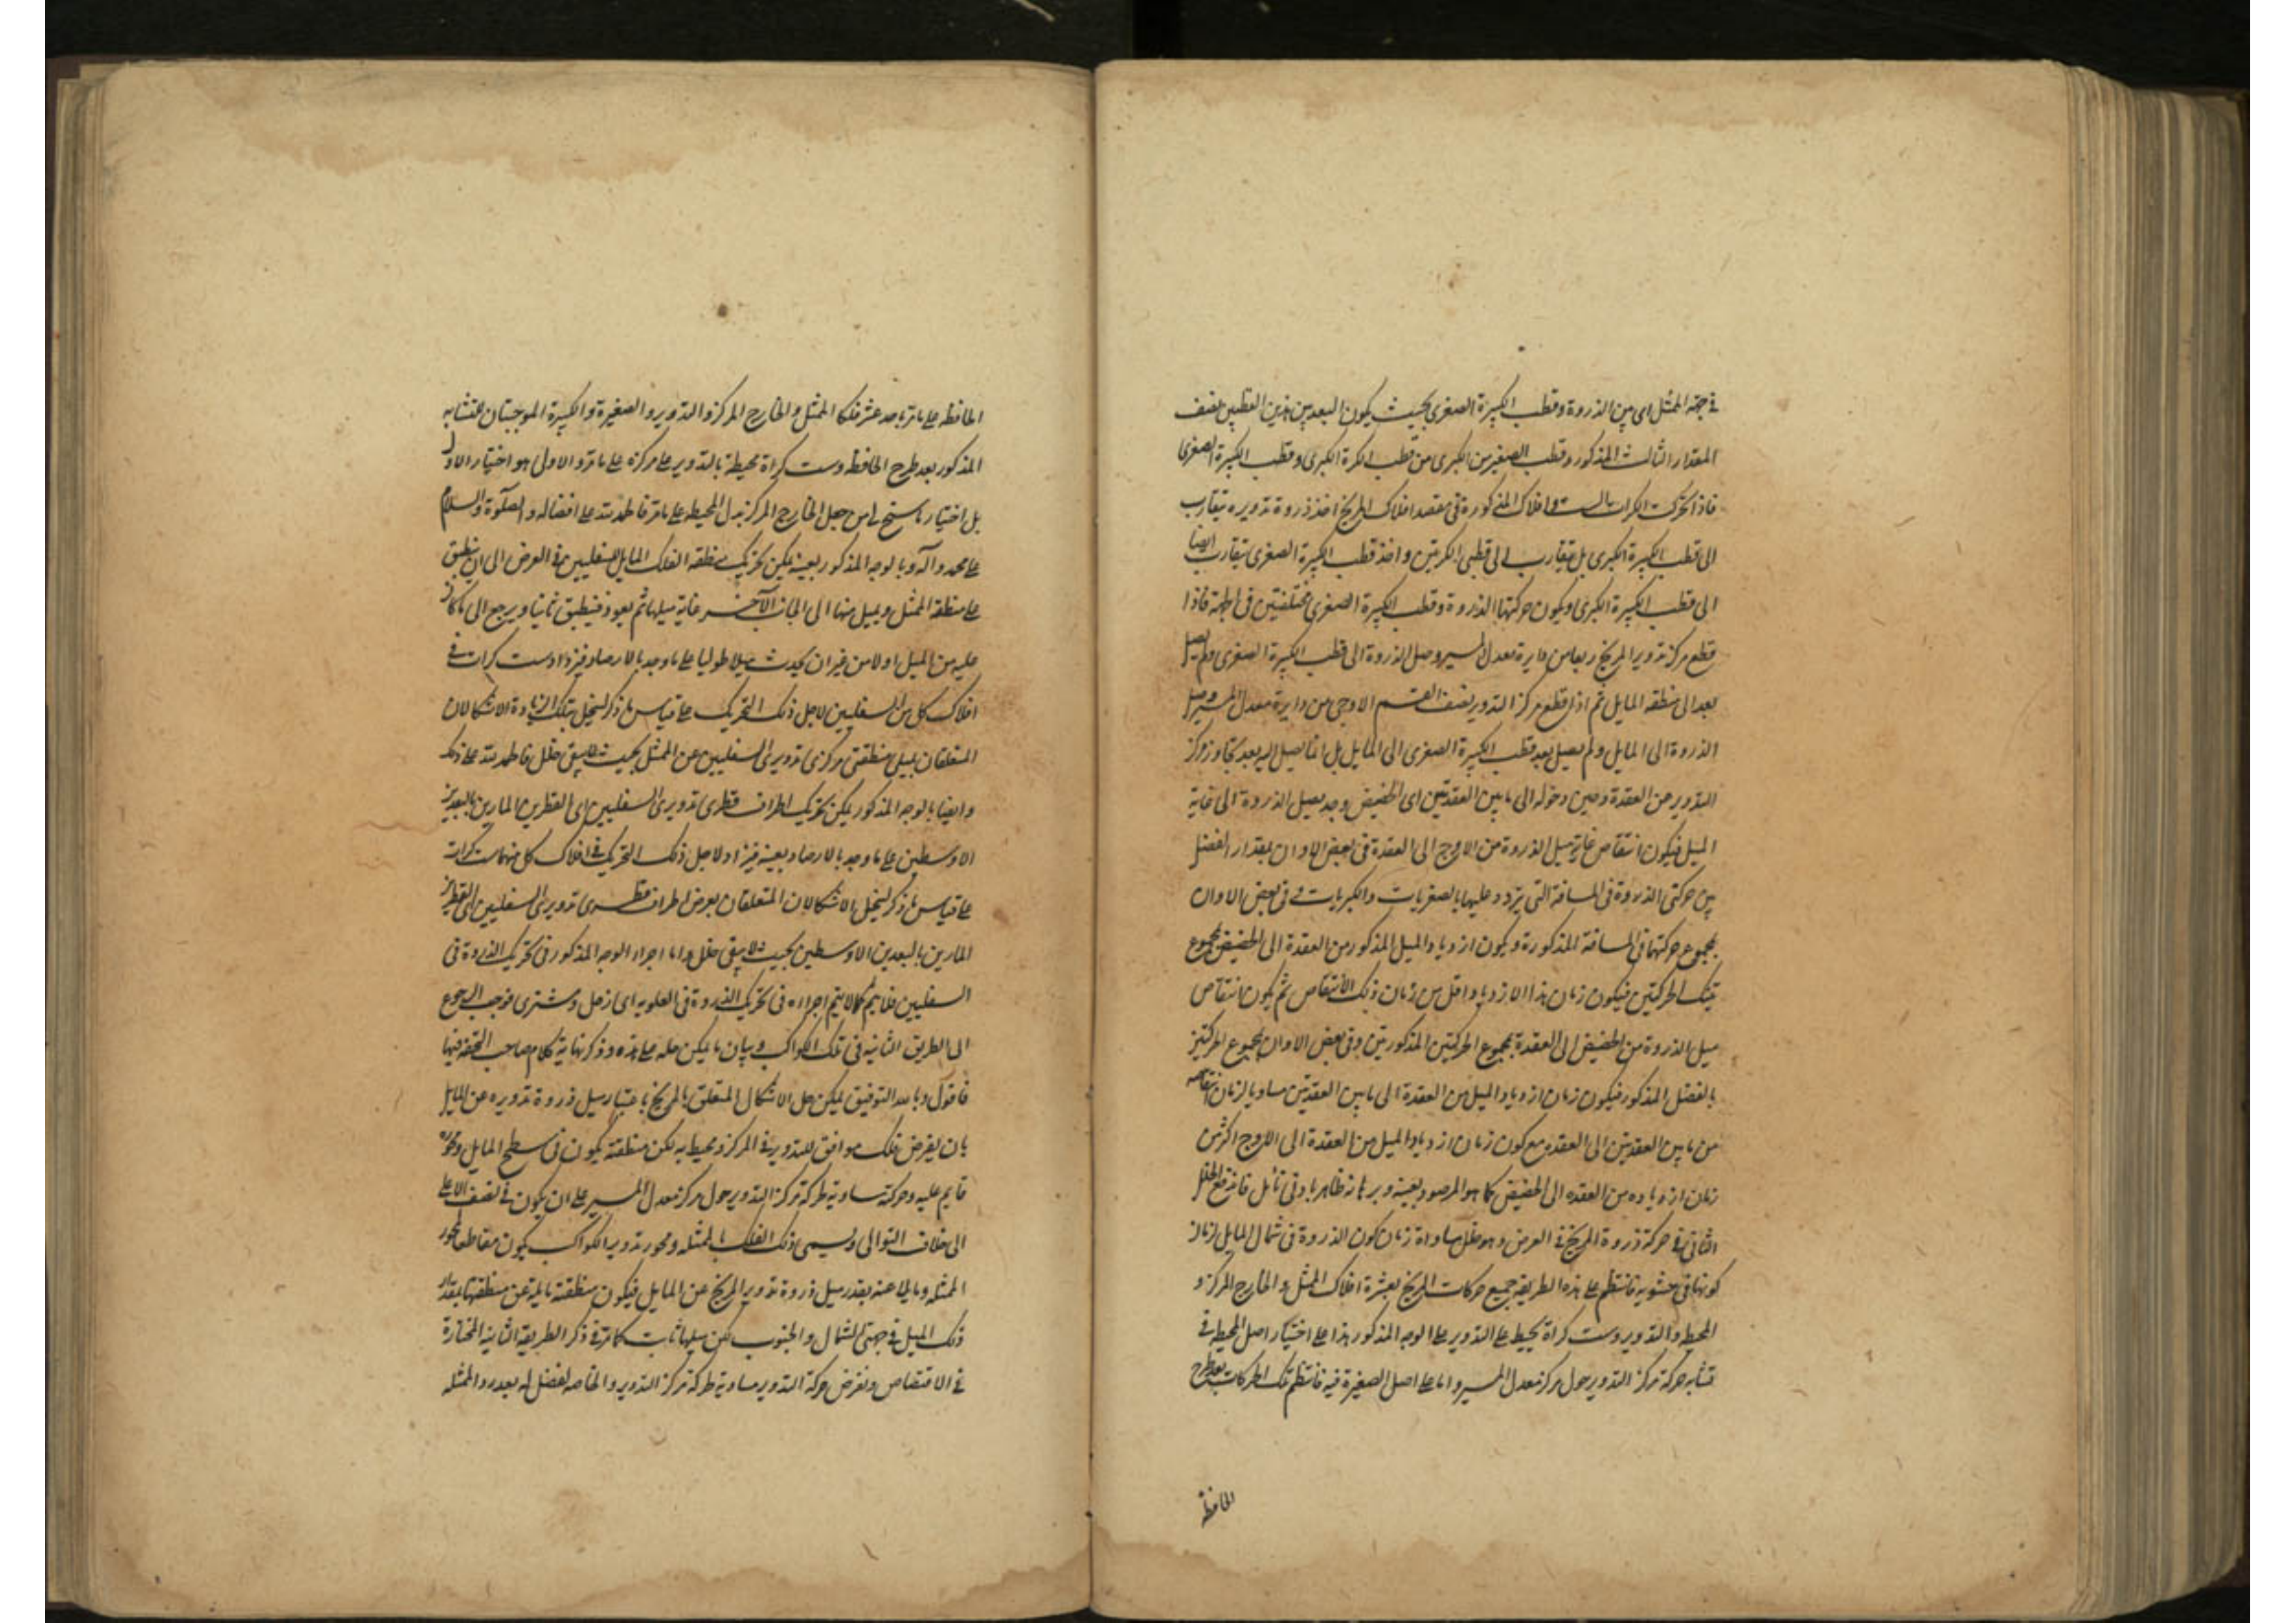 في جهة الممثل اى بين الذروة وقطب الكبيرة الصغرى بحيث يكون البعد بين هذين القطبين نصف
المقدار الثالث المذكور وقطب الصغير من الكبرى من قطب الكرة الكبرى وقطب الكبيرة الصغرى
فاذا تحركت الكرات الست وافلاك المذكورة في مقصد افلاك المريخ اخذ ذروة تدويره يتقارب
الى قطب الكبيرة الكبرى بل يتقارب الى قطبى الكرتين واخذ قطب الكبيرة الصغرى يتقارب ايضا
الى قطب الكبيرة الكبرى ويكون حركتها الذروة وقطب الكبيرة الصغرى مختلفتين في الجهة فاذا
قطع مركز تدوير المريخ ربعا من دايرة معدل المسير وصل الذروة الى قطب الكبيرة الصغرى ولم يصل
بعد الى منطقة المايل ثم اذا قطع مركز التدوير نصف القسم الاوجى من دايرة معدل المسير وصل
الذروة الى المايل ولم يصل بعد قطب الكبيرة الصغرى الى المايل بل انما يصل اليه بعد تجاوز مركز
التدوير عن العقدة وحين دخوله الى ما بين العقدتين اى الحضيض وحد يصل الذروة الى غاية
الميل فيكون انتقاص غاية ميل الذروة من الاوج الى العقدة في بعض الاوان بمقدار الفضل
بين حركتى الذروة في المسافة التى يتردد عليها بالصغريات والكبريات وفي بعض الاوان
بمجموع حركتهما في المسافة المذكورة ويكون ازدياد الميل المذكور من العقدة الى الحضيض بمجموع
تينك الحركتين فيكون زمان هذا الازدياد اقل من زمان ذلك الانتقاص ثم يكون انتقاص
ميل الذروة من الحضيض الى العقدة بمجموع الحركتين المذكورتين وفي بعض الاوان بمجموع الحركتين
بالفضل المذكور فيكون زمان ازدياد الميل من العقدة الى ما بين العقدتين مساويا لزمان انتقاصه
من ما بين العقدتين الى العقدة مع كون زمان ازدياد الميل من العقدة الى الاوج اكثر من
زمان ازدياده من العقدة الى الحضيض كما هو المرصود بعينه وبرهانه ظاهر بادنى تامل فاندفع الخلل
الثانى في حركة ذروة المريخ في العرض وهو خلل مساواة زمان كون الذروة في شمال المايل لزمان
كونها في جنوبه فانتظم على هذه الطريقة جميع حركات المريخ بعشرة افلاك الممثل والخارج المركز و
المحيط والتدوير وست كراة يحيط على التدوير على الوجه المذكور هذا على اختيار اصل المحيط في
تشابه حركة مركز التدوير حول مركز معدل المسير واما على اصل الصغيرة فيه فانتظم تلك الحركات بعد طرح
الحافظة
الحافظة على ما مر باحد عشر فلكا الممثل والخارج المركز والتدوير والصغيرة والكبيرة الموجبتان للتشابه
المذكور بعد طرح الحافظة وست كراة محيطة بالتدوير على مركزه على ما مر والاولى هو اختيار الاول
بل اختيار ما سنح من جعل الخارج المركز بدل المحيط على ما مر فالحمد لله على افضاله والصلوة والسلام
على محمد وآله وبالوجه المذكور بعينه يمكن تحريك منطقة الفلك المايل للسفليين في العرض الى ان ينطبق
على منطقة الممثل ويميل منها الى الجانب الآخر غاية ميلها ثم يعود فينطبق ثانيا ويرجع الى ما كان
عليه من الميل اولا من غير ان يحدث ميلا طوليا على ما وجد بالارصاد فيزداد ست كرات في
افلاك كل من السفليين لاجل ذلك التحريك على قياس ما ذكر لينحل بتلك الزيادة الاشكالان
المتعلقان بميلى منطقتى مركزى تدويرى السفليين عن الممثل بحيث لا يبقى خلل فالحمد لله على ذلك
وايضا بالوجه المذكور يمكن تحريك اطراف قطرى تدويرى السفليين اى القطرين المارين بالبعدين
الاوسطين على ما وجد بالارصاد بعينه فيزداد لاجل ذلك التحريك في افلاك كل منهما ست كرات
على قياس ما ذكر لينحل الاشكالان المتعلقان بعرض اطراف قطرى تدويرى السفليين اى القطرين
المارين بالبعدين الاوسطين بحيث لا يبقى خلل واما اجراء الوجه المذكور في تحريك الذروة في
السفليين فلا يتم كما لا يتم اجراءه في تحريك الذروة في العلويه اى زحل ومشترى فوجب الرجوع
الى الطريق الثانيه في تلك الكواكب وبيان ما يمكن حله على هذه وذكر نهاية كلام صاحب التحفة فيها
فاقول وبالله التوفيق يمكن حل الاشكال المتعلق بالمريخ باعتبار ميل ذروة تدويره عن المايل
بان يفرض فلك موافق للتدوير في المركز ومحيط به لكن منطقته يكون في سطح المايل ومحوره
قايم عليه وحركته مساوية لحركة مركز التدوير حول مركز معدل المسير على ان يكون في نصف الاعلى
الى خلاف التوالى ويسمى ذلك الفلك الممثله ومحور تدوير الكواكب يكون مقاطعا لمحور
الممثله ومايلا عنه بقدر ميل ذروة تدوير المريخ عن المايل فيكون منطقته مايلة عن منطقتها بمقدار
ذلك الميل في جهتى الشمال والجنوب لكن ميلها ثابت كما مر في ذكر الطريقة الثانيه المختارة
في الاقتصاص ونفرض حركة التدوير مساوية لحركة مركز التدوير والخاصه لفضل له بعد رد الممثله